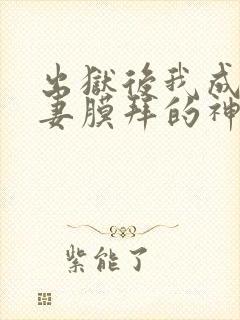 出獄後我成
妻膜拜的神
紫能了